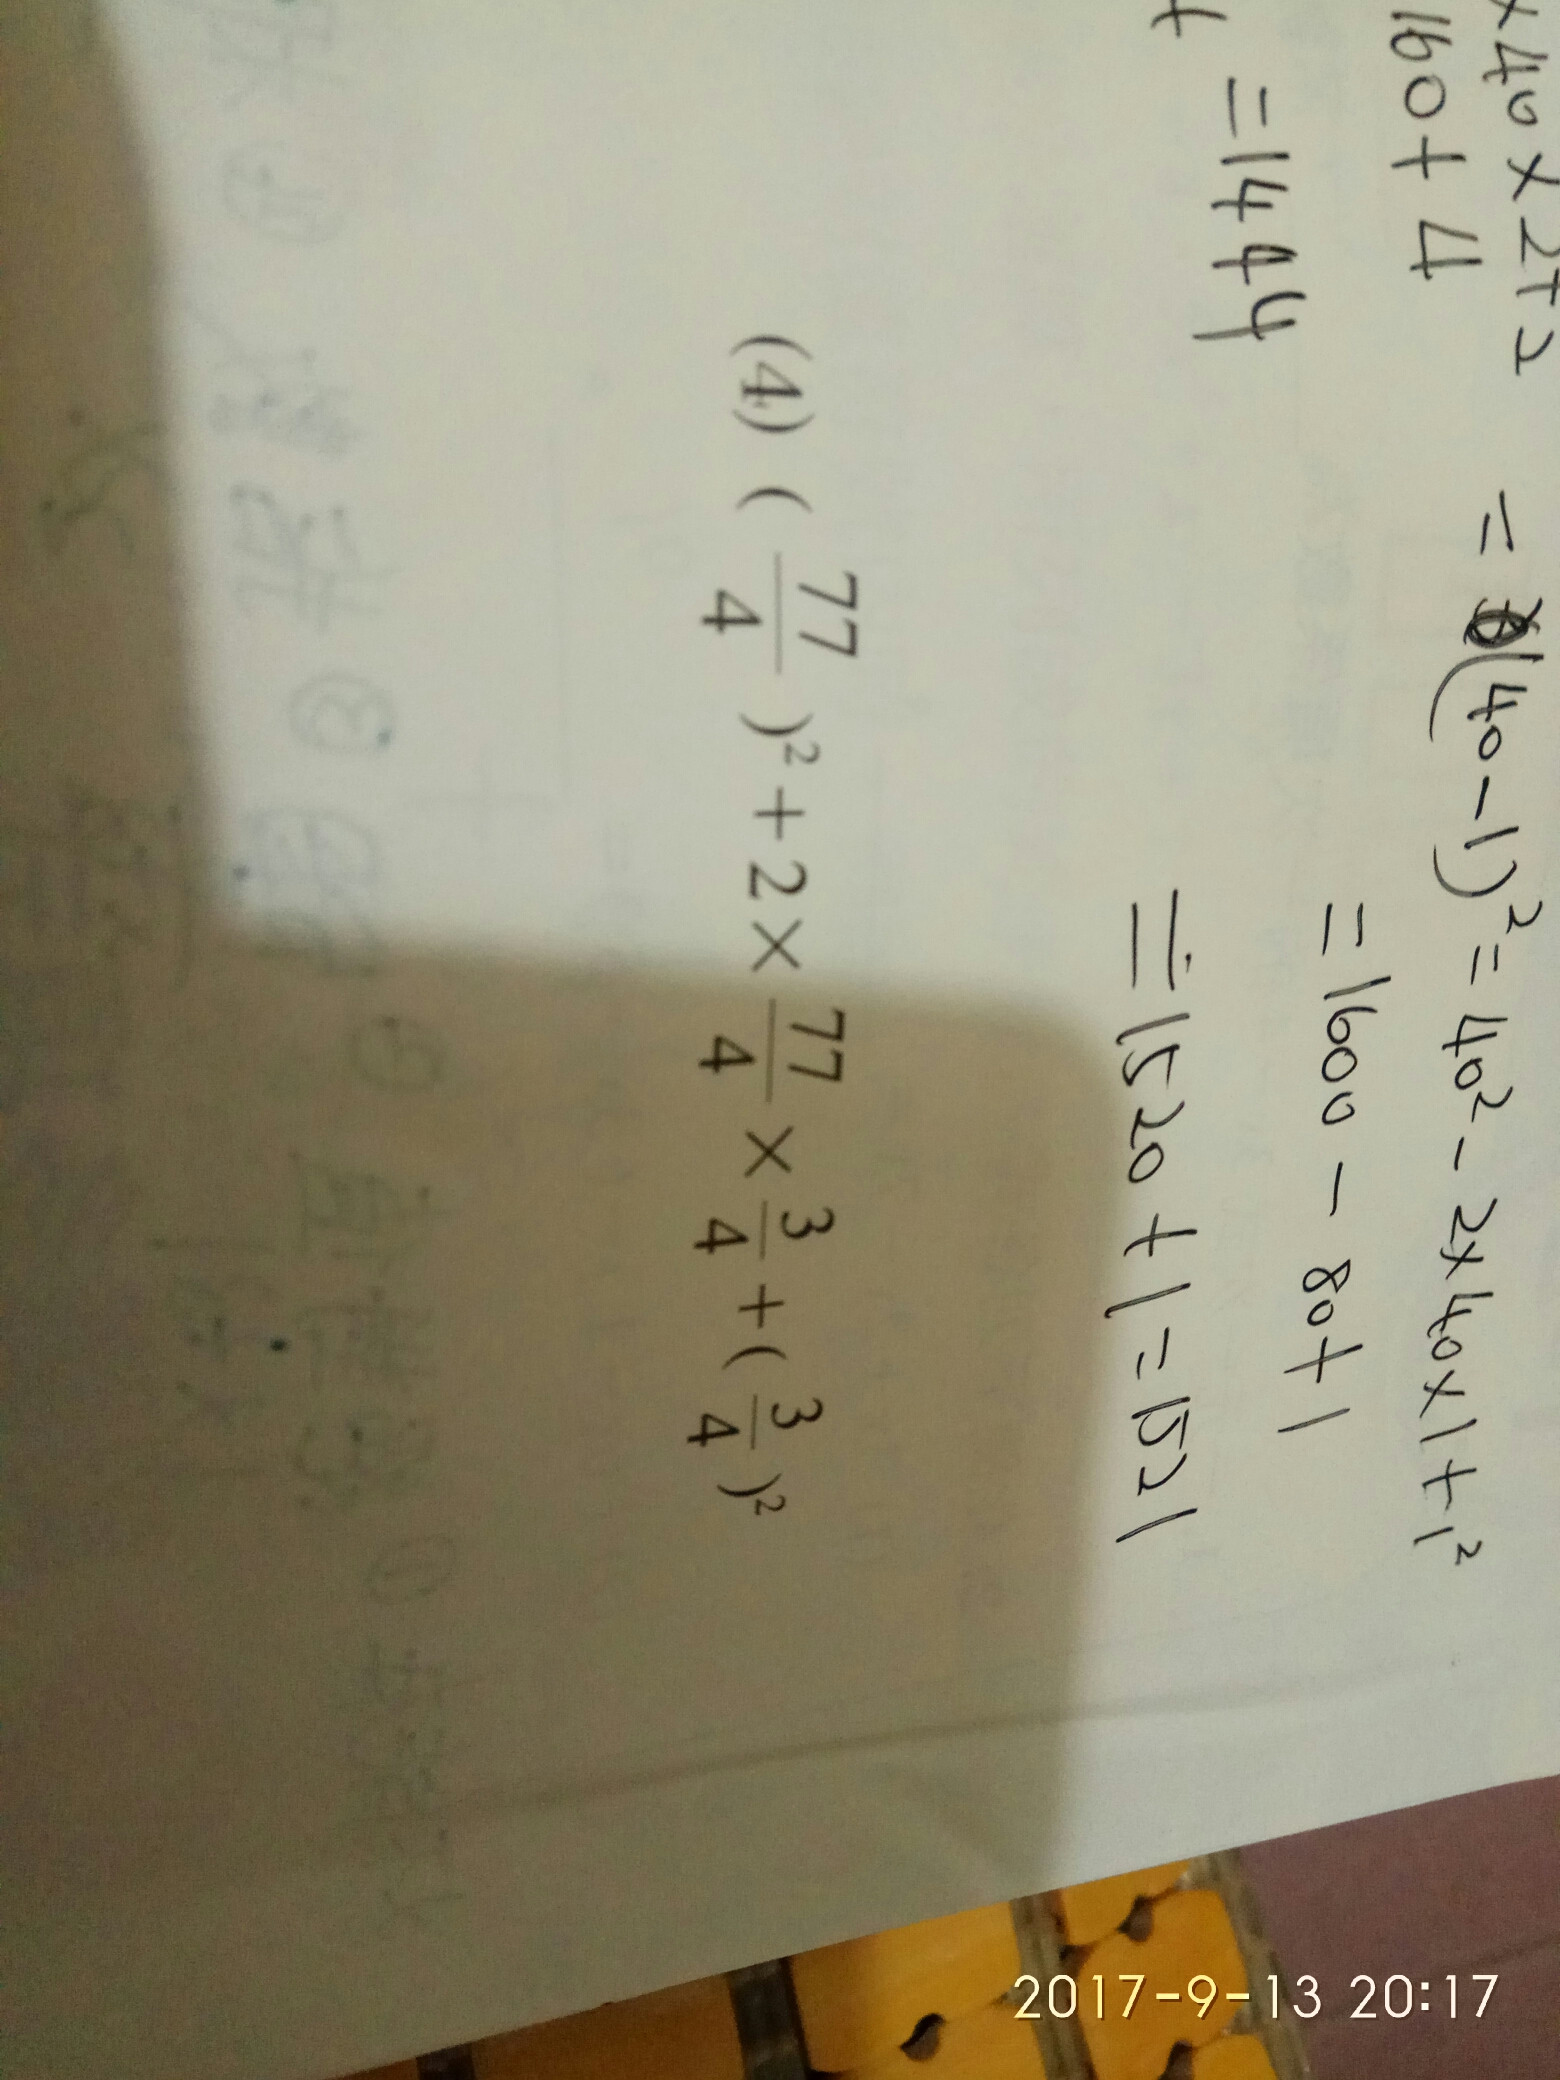 ×40×2+2
160+4
+ =1444
=(40-1)²=40²-2×40×1+1²
=1600-80+1
=1520+1=1521
(4) (77/4)²+2×77/4×3/4+(3/4)²
2017-9-13 20:17